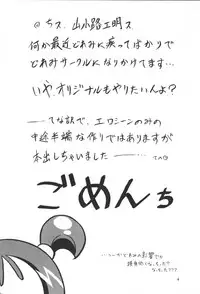 のちス、山小路工明ス
何か最近どれみに羨ってばかりで
どれみサークルになりかけてます…
いや、オリジナルもやりたいんよ？
――てな訳で、エロシーンのみの
中途半端な作りではありますが
本出しちゃいました――
ごめんち